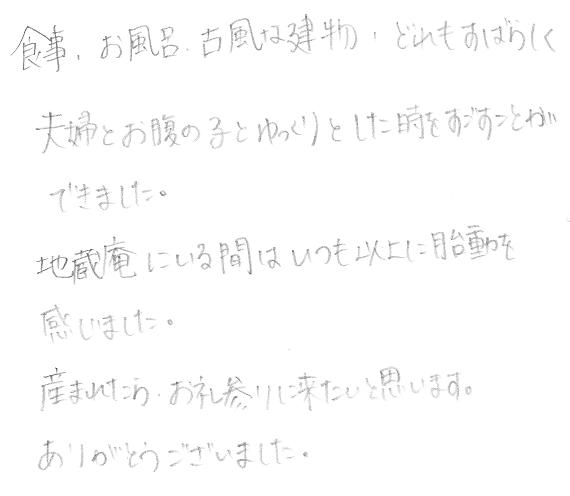 食事、お風呂、古風な建物、どれもすばらしく
夫婦とお腹の子とゆっくりとした時をすごすことが
できました。
地蔵庵にいる間はいつも以上に胎動を
感じました。
産まれたら、お礼参りに来たいと思います。
ありがとうございました。